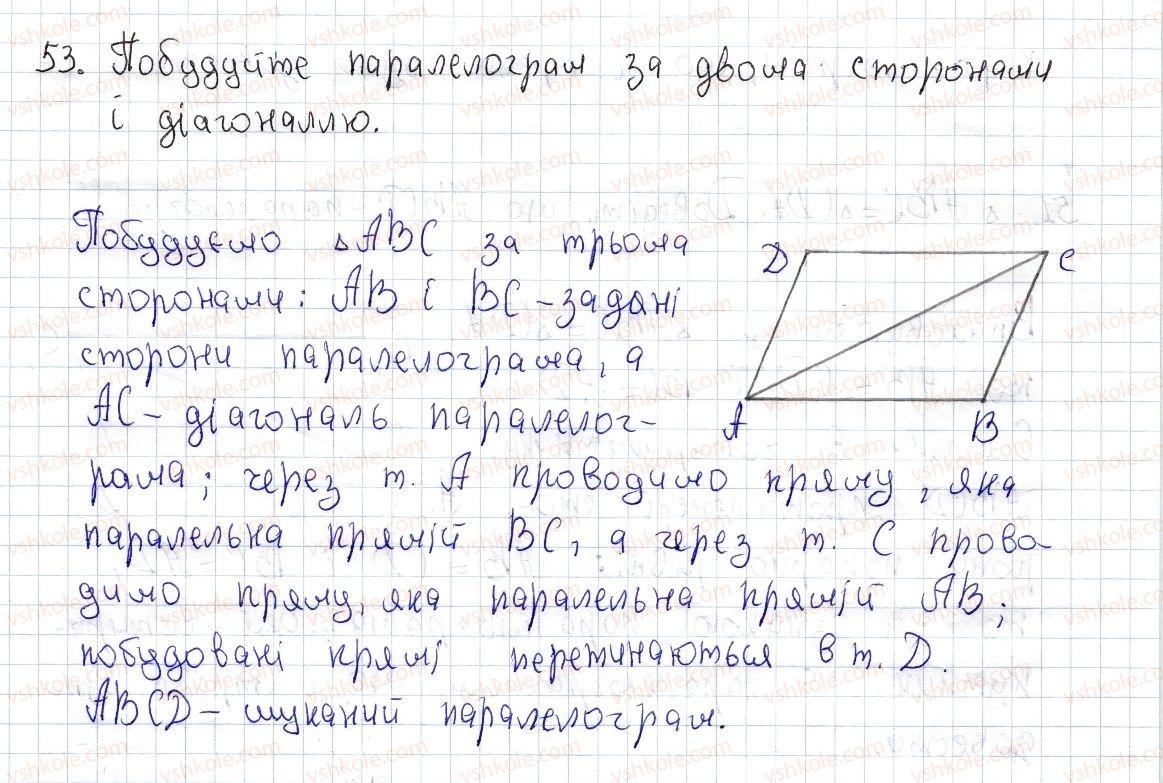 53. Побудуйте паралелограм за двома сторонами
і діагоналлю.
Побудуємо △ABC за трьома
сторонами: AB і BC - задані
сторони паралелограма, а
AC - діагональ паралелог-
рама; через т. A проводимо пряму, яка
паралельна прямій BC, а через т. C прово-
димо пряму, яка паралельна прямій AB;
побудовані прямі перетинаються в т. D.
ABCD - шуканий паралелограм.
D
C
A
B